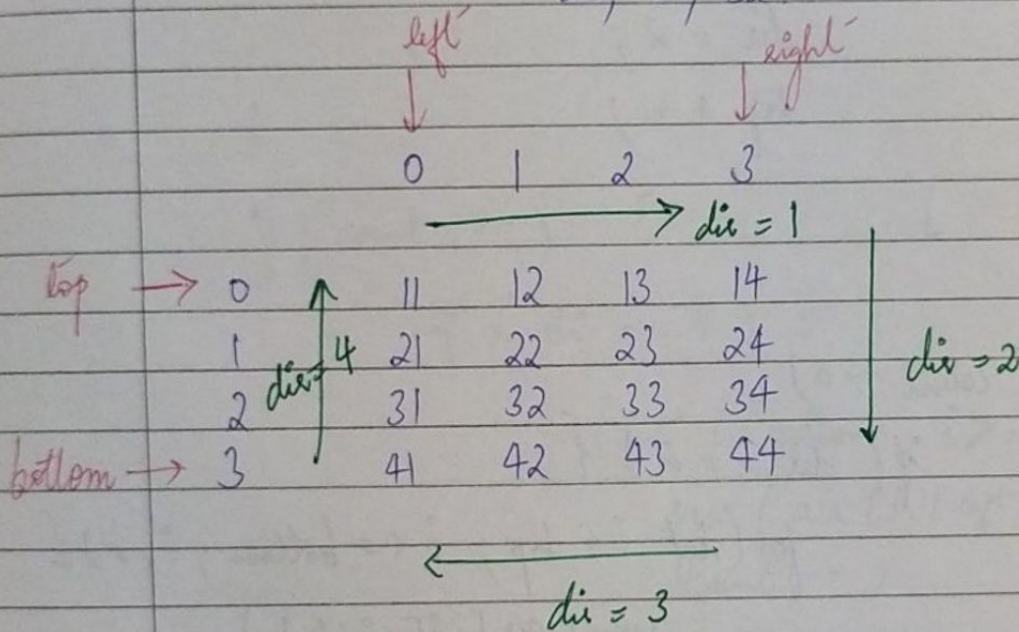 left right
0 1 2 3
dir = 1
top → 0 11 12 13 14
1 21 22 23 24
dir = 4
dir = 2
2 31 32 33 34
bottom → 3 41 42 43 44
dir = 3